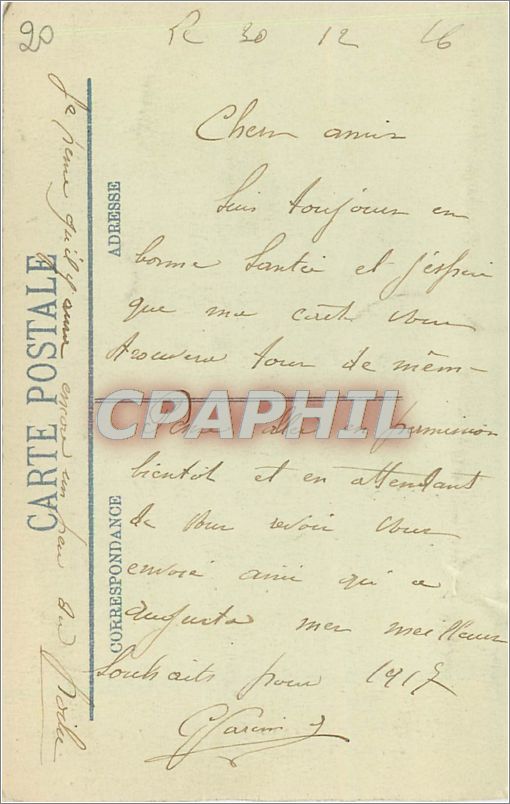 20
Le 30 12 16
Chers amis
Suis toujours en
bonne Santée et j'éspère
que ma carte vous
trouvera tous de mêm-
CPAPHIL
aller en permission
bientôt et en attendant
de vous revoir vous
envoie ainsi qu'a
Augusta mes meilleurs
Souhaits pour 1917
ADRESSE
CORRESPONDANCE
CARTE POSTALE
Je pense qu'il y aura encore un peu du